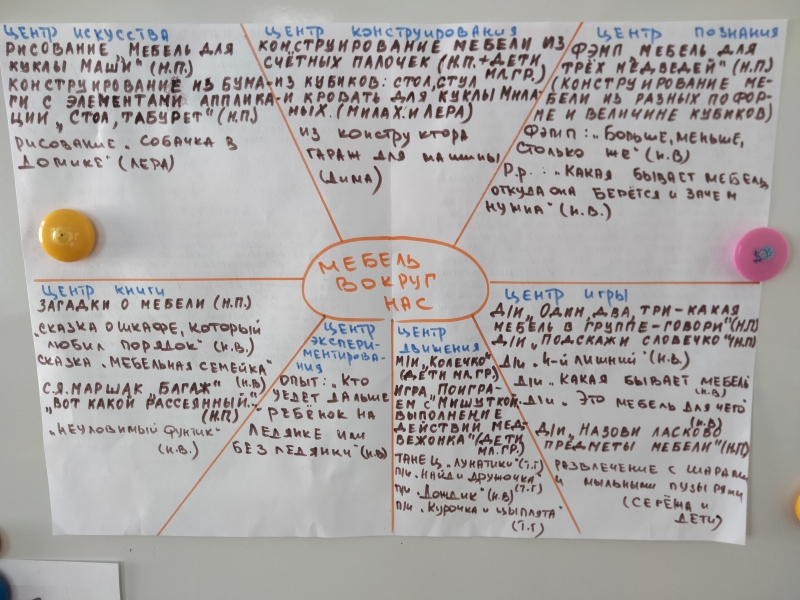 ЦЕНТР ИСКУССТВА
РИСОВАНИЕ „МЕБЕЛЬ ДЛЯ
КУКЛЫ МАШИ" (Н.П.)
КОНСТРУИРОВАНИЕ ИЗ БУМА-
ГИ С ЭЛЕМЕНТАМИ АППЛИКА-
ЦИИ „СТОЛ, ТАБУРЕТ" (Н.П)
РИСОВАНИЕ „СОБАЧКА В
ДОМИКЕ" (ЛЕРА)
ЦЕНТР КОНСТРУИРОВАНИЯ
КОНСТРУИРОВАНИЕ МЕБЕЛИ ИЗ
СЧЁТНЫХ ПАЛОЧЕК (Н.П.+ДЕТИ
МЛ.ГР.)
ИЗ КУБИКОВ: СТОЛ, СТУЛ
И КРОВАТЬ ДЛЯ КУКЛЫ МИЛА-
НЫ Х. (МИЛА Х. И ЛЕРА)
ИЗ КОНСТРУКТОРА
ГАРАЖ ДЛЯ МАШИНЫ
(ДИМА)
ЦЕНТР ПОЗНАНИЯ
ФЭМП „МЕБЕЛЬ ДЛЯ
ТРЁХ МЕДВЕДЕЙ" (Н.П)
(КОНСТРУИРОВАНИЕ МЕ-
БЕЛИ ИЗ РАЗНЫХ ПО ФОР-
МЕ И ВЕЛИЧИНЕ КУБИКОВ)
ФЭМП: „БОЛЬШЕ, МЕНЬШЕ,
СТОЛЬКО ЖЕ" (Н.В)
Р.р.: „КАКАЯ БЫВАЕТ МЕБЕЛЬ,
ОТКУДА ОНА БЕРЁТСЯ И ЗАЧЕМ
НУЖНА" (Н.В.)
МЕБЕЛЬ
ВОКРУГ
НАС
ЦЕНТР КНИГИ
ЗАГАДКИ О МЕБЕЛИ (Н.П.)
„СКАЗКА О ШКАФЕ, КОТОРЫЙ
ЛЮБИЛ ПОРЯДОК" (Н.В.)
СКАЗКА „МЕБЕЛЬНАЯ СЕМЕЙКА"
(Н.В)
С.Я. МАРШАК „БАГАЖ"
„ВОТ КАКОЙ РАССЕЯННЫЙ.."
(Н.П)
„НЕУЛОВИМЫЙ ФУНТИК"
(Н.В.)
ЦЕНТР
ЭКСПЕРИ-
МЕНТИРОВА-
НИЯ
ОПЫТ: „КТО
УЕДЕТ ДАЛЬШЕ
- РЕБЁНОК НА
ЛЕДЯНКЕ ИЛИ
БЕЗ ЛЕДЯНКИ" (Н.В)
ЦЕНТР
ДВИЖЕНИЯ
М/И „КОЛЕЧКО"
(ДЕТИ МЛ.ГР)
ИГРА „ПОИГРА-
ЕМ С МИШУТКОЙ.
ВЫПОЛНЕНИЕ
ДЕЙСТВИЙ МЕД-
ВЕЖОНКА" (ДЕТИ
МЛ.ГР.)
ТАНЕЦ „ЛУНАТИКИ" (Т.Г)
П/И „НАЙДИ ДРУЖОЧКА"
(Т.Г)
П/И „ДОЖДИК" (Н.В)
П/И „КУРОЧКА И ЦЫПЛЯТА"
(Т.Г)
ЦЕНТР ИГРЫ
Д/И „ОДИН, ДВА, ТРИ-КАКАЯ
МЕБЕЛЬ В ГРУППЕ-ГОВОРИ" (Н.П)
Д/И „ПОДСКАЖИ СЛОВЕЧКО" (Н.П)
Д/И „4-Й ЛИШНИЙ" (Н.В.)
Д/И „КАКАЯ БЫВАЕТ МЕБЕЛЬ"
(Н.В)
Д/И „ЭТО МЕБЕЛЬ ДЛЯ ЧЕГО"
(Н.В)
Д/И „НАЗОВИ ЛАСКОВО
ПРЕДМЕТЫ МЕБЕЛИ" (Н.П)
РАЗВЛЕЧЕНИЕ С ШАРАМИ
И МЫЛЬНЫМИ ПУЗЫРЯМИ
(СЕРЁЖА И
ДЕТИ)